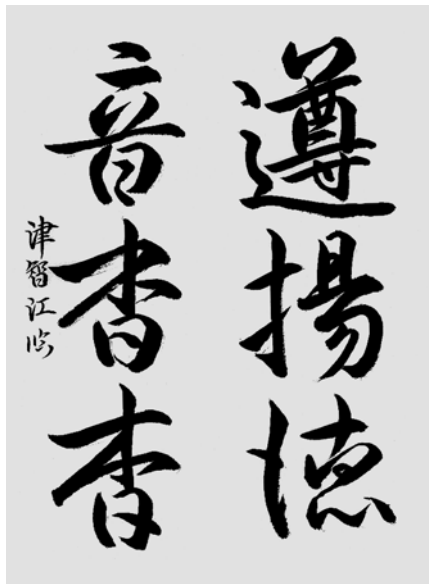 遵揚徳
音杳杳
津智江臨